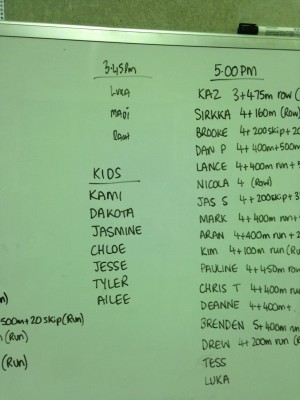 3.45pm
LUKA
MADI
KIDS
KAMI
DAKOTA
JASMINE
CHLOE
JESSE
TYLER
AILEE
500m+20 skip (Run)
(Run)
(Run)
5:00PM
KAZ 3+475m row
SIRKKA 4+160m (Row)
BROOKE 4+200skip+20
DAN P 4+400m+500m
LANCE 4+400m run+5
NICOLA 4 (Row)
JAS S 4+200skip+3
MARK 4+400m run+
ARAN 4+400m run+2
KIM 4+100m run (Ru
PAULINE 4+450m row
CHRIS T 4+400m run
DEANNE 4+400m+
BRENDEN 5+400m run
DREW 4+200m run (R
TESS
LUKA